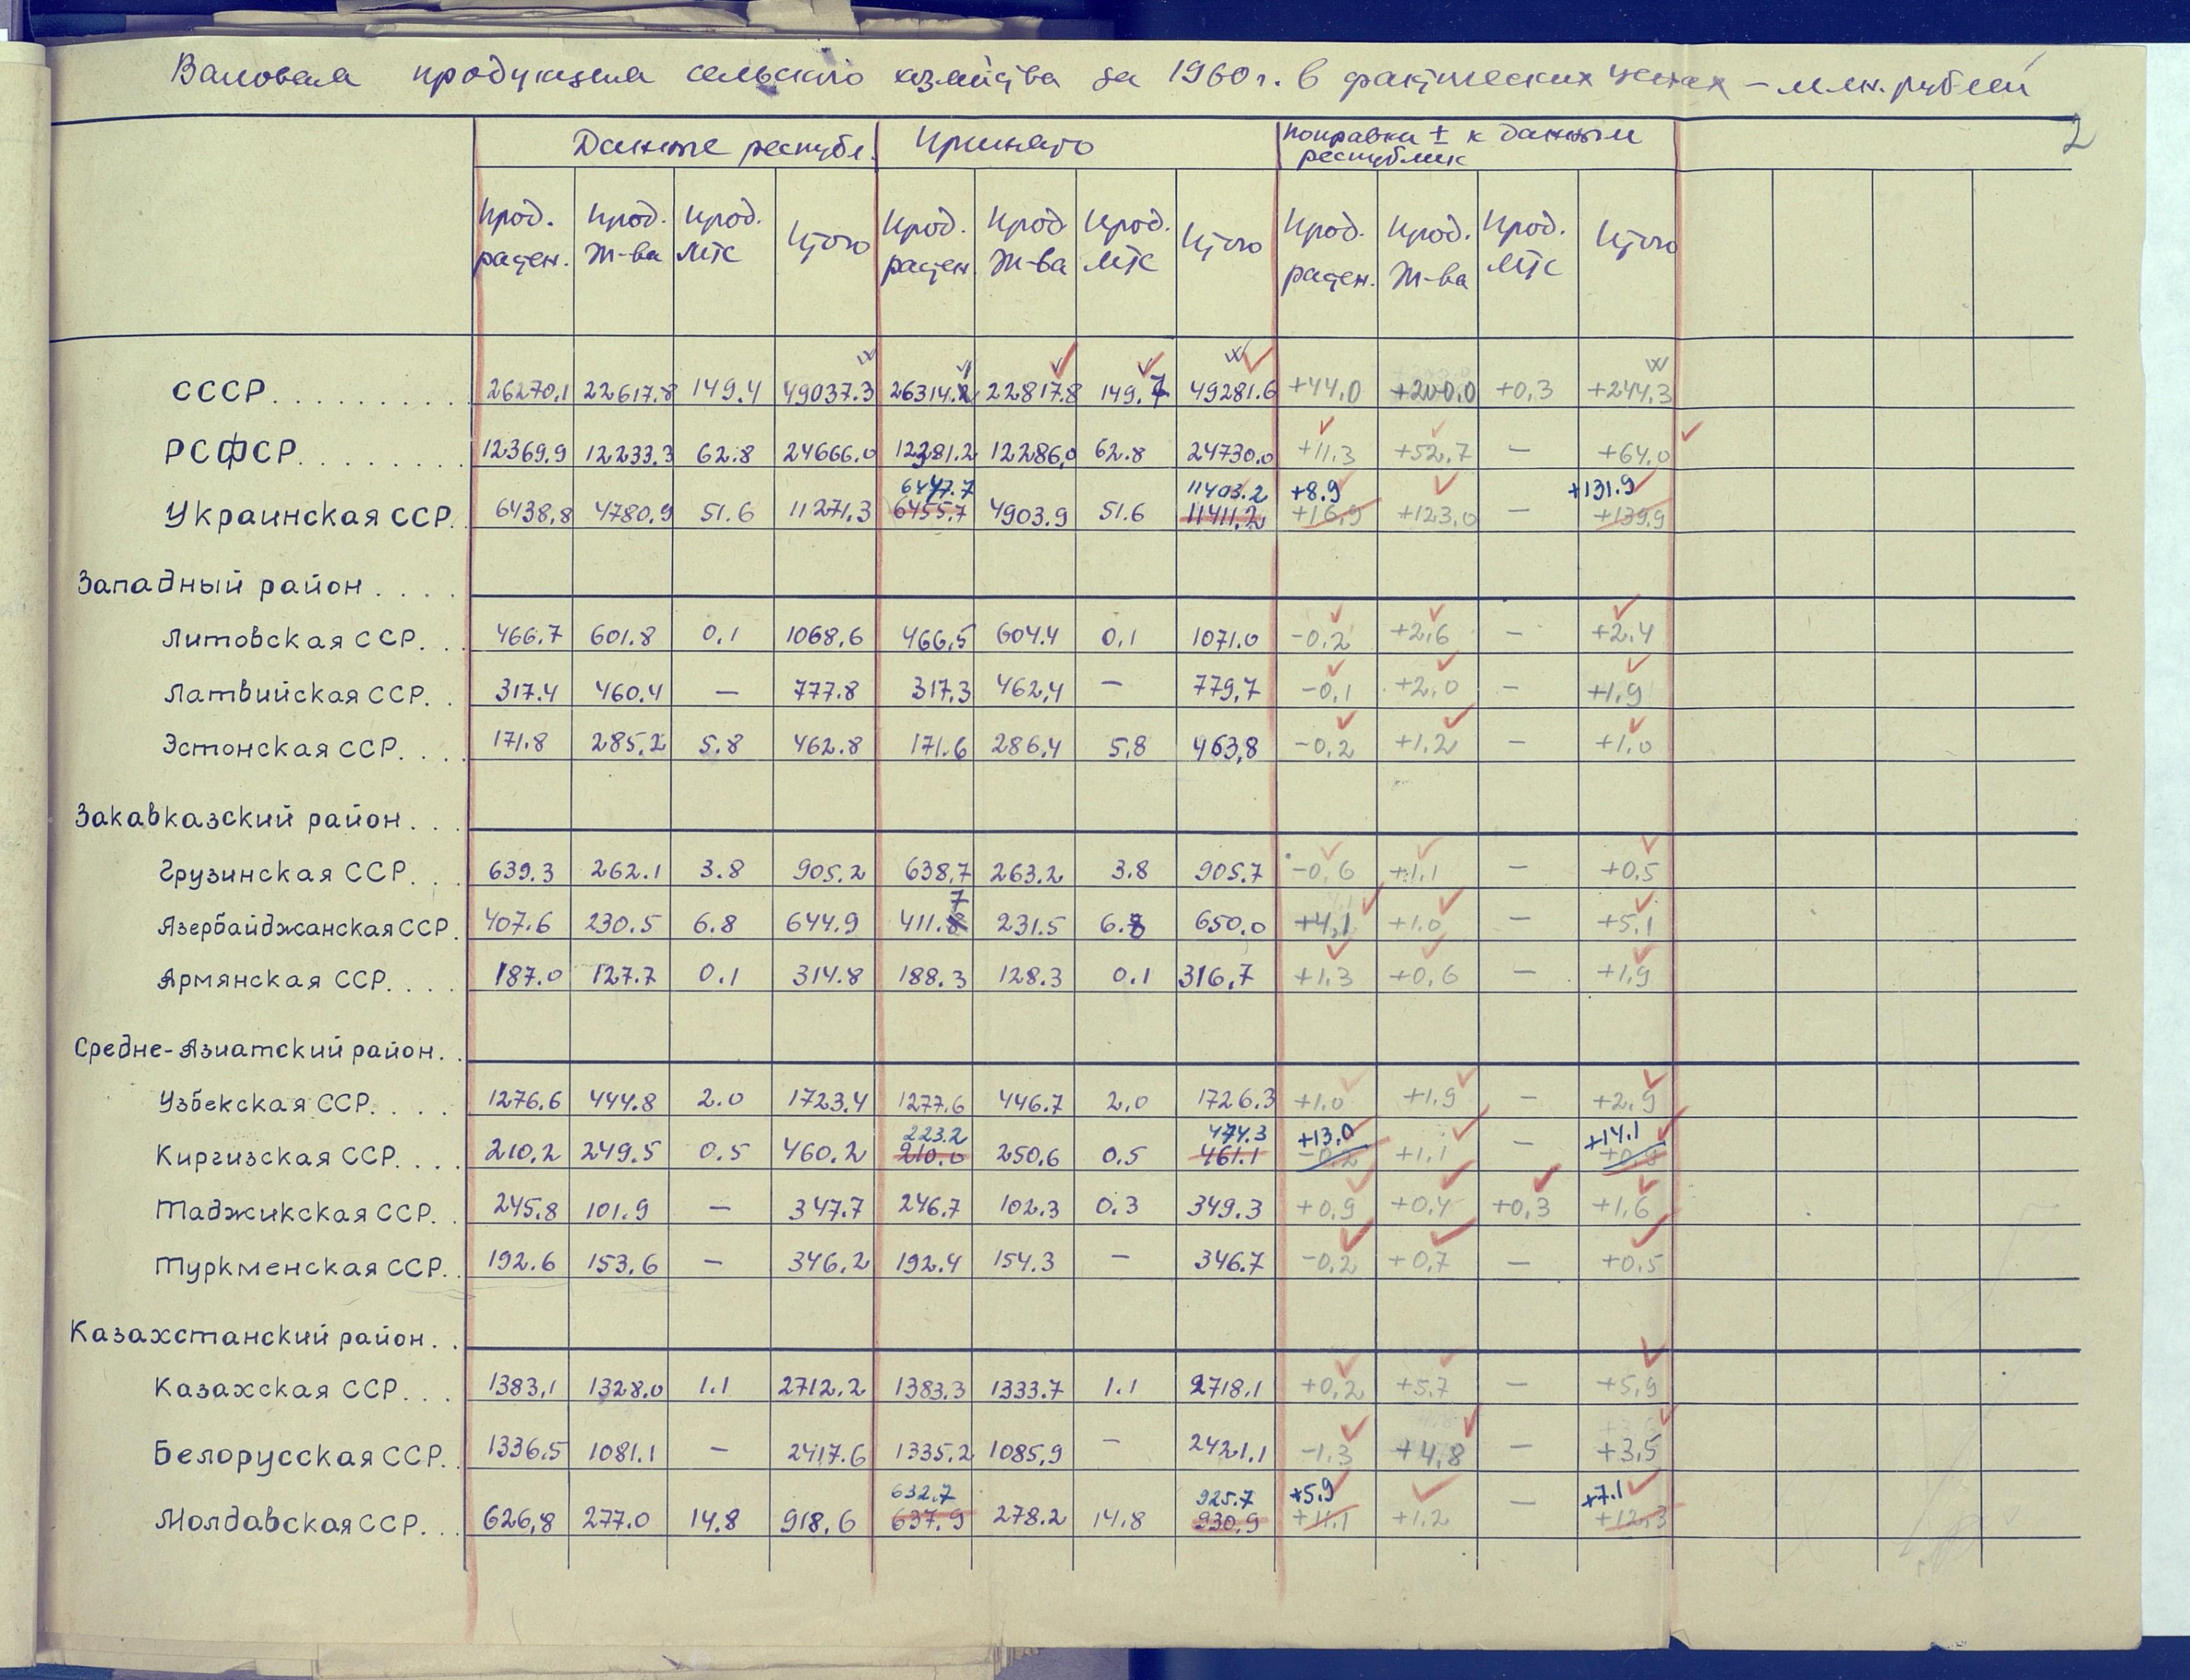 Валовая продукция сельского хозяйства за 1960 г. в фактических ценах – млн. рублей
2
Данные республ. Принято Поправки ± к данным
республик
Прод. Прод. Прод. Итого Прод. Прод Прод. Итого Прод. Прод. Прод. Итого
растен. Ж-ва МТС растен. Ж-ва МТС растен. Ж-ва МТС
СССР 26270,1 22617.8 149.4 49037.3 26314.2 22817.8 149.7 49281.6 +44,0 +200,0 +0,3 +244,3
РСФСР 12369.9 12233.3 62.8 24666.0 12381.2 12286,0 62.8 24730.0 +11.3 +52,7 — +64,0
6447.7 11403.2 +8.9 +131.9
Украинская ССР 6438,8 4780.9 51.6 11271,3 6455,7 4903.9 51.6 11411,2 +16,9 +123,0 — +139,9
Западный район
Литовская ССР 466.7 601.8 0,1 1068,6 466,5 604.4 0,1 1071.0 -0,2 +2,6 — +2,4
Латвийская ССР 317.4 460.4 — 777.8 317.3 462,4 — 779,7 -0,1 +2,0 — +1,9
Эстонская ССР 171.8 285,2 5.8 462.8 171.6 286,4 5,8 463,8 -0,2 +1,2 — +1,0
Закавказский район
Грузинская ССР 639.3 262.1 3.8 905.2 638,7 263.2 3.8 905.7 -0,6 +1,1 — +0,5
7
Азербайджанская ССР 407.6 230.5 6.8 644.9 411.8 231.5 6.8 650,0 +4,1 +1,0 — +5,1
Армянская ССР 187.0 127.7 0.1 314.8 188.3 128.3 0.1 316,7 +1,3 +0,6 — +1,9
Средне-Азиатский район
Узбекская ССР 1276.6 444.8 2.0 1723.4 1277.6 446.7 2,0 1726.3 +1,0 +1,9 — +2,9
223.2 474.3 +13,0 +14.1
Киргизская ССР 210.2 249.5 0.5 460.2 210.0 250.6 0.5 461.1 -0,2 +1,1 —
Таджикская ССР 245.8 101.9 — 347.7 246.7 102.3 0.3 349.3 +0,9 +0,4 +0,3 +1,6
Туркменская ССР 192.6 153.6 — 346.2 192.4 154.3 — 346.7 -0,2 +0,7 — +0,5
Казахстанский район
Казахская ССР 1383,1 1328.0 1.1 2712.2 1383.3 1333.7 1.1 2718.1 +0,2 +5,7 — +5,9
Белорусская ССР 1336.5 1081.1 — 2417.6 1335.2 1085,9 — 2421,1 -1,3 +4,8 — +3,5
632.7 925.7 +5,9 +7.1
Молдавская ССР 626,8 277.0 14.8 918,6 637.9 278.2 14.8 930,9 +11,1 +1,2 — +12,3